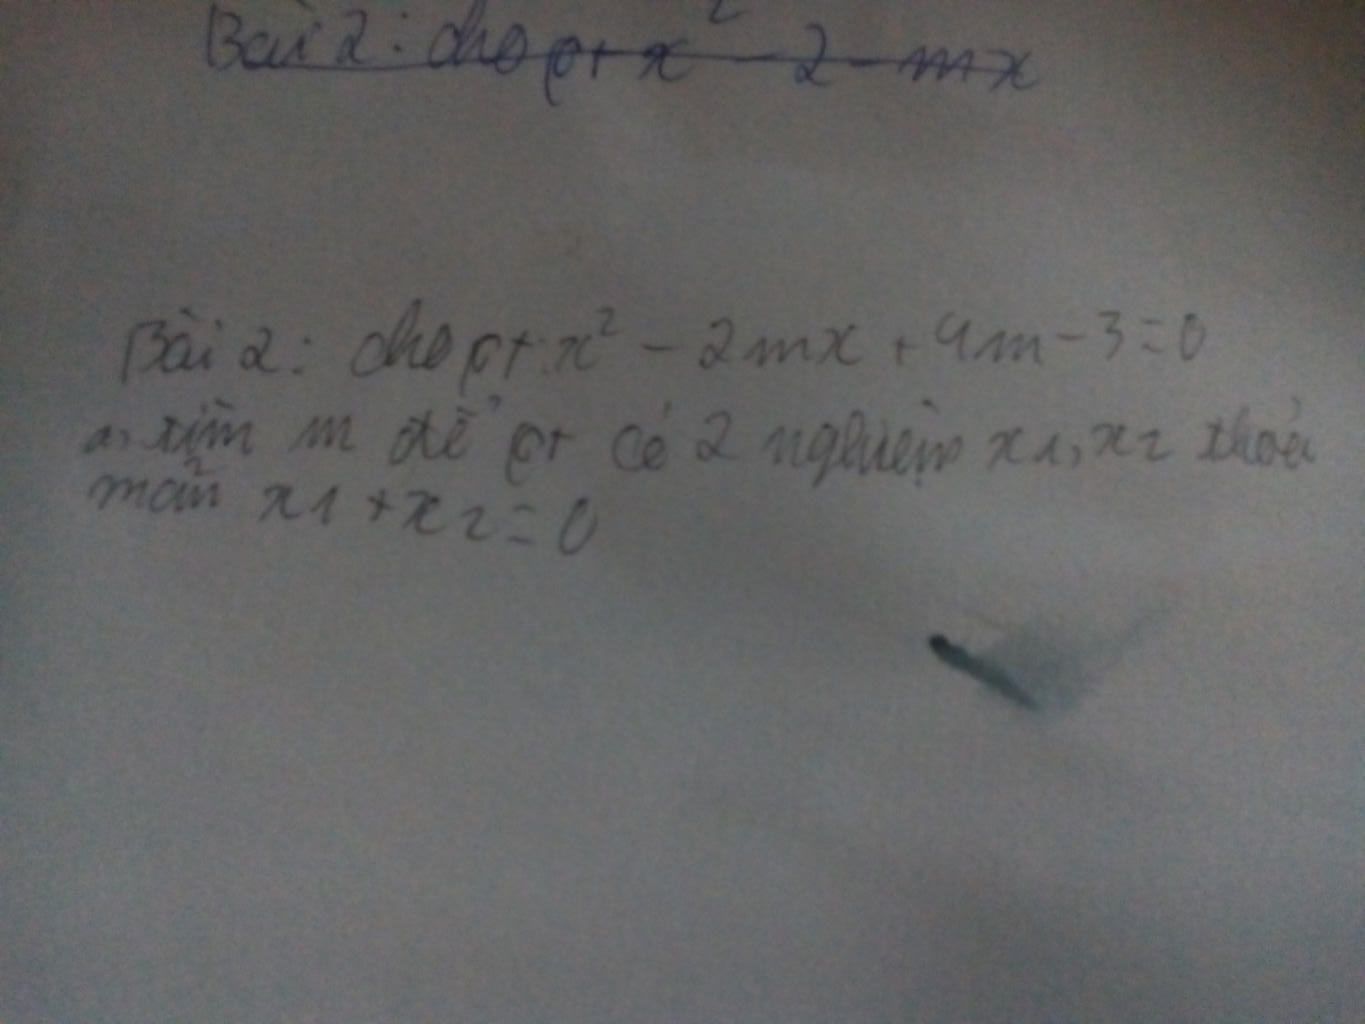 Bài 2: cho pt x² - 2 - mx
Bài 2: cho pt: x² - 2mx + 4m - 3 = 0
a, tìm m để pt có 2 nghiệm x1, x2 thỏa
mãn x1 + x2 = 0